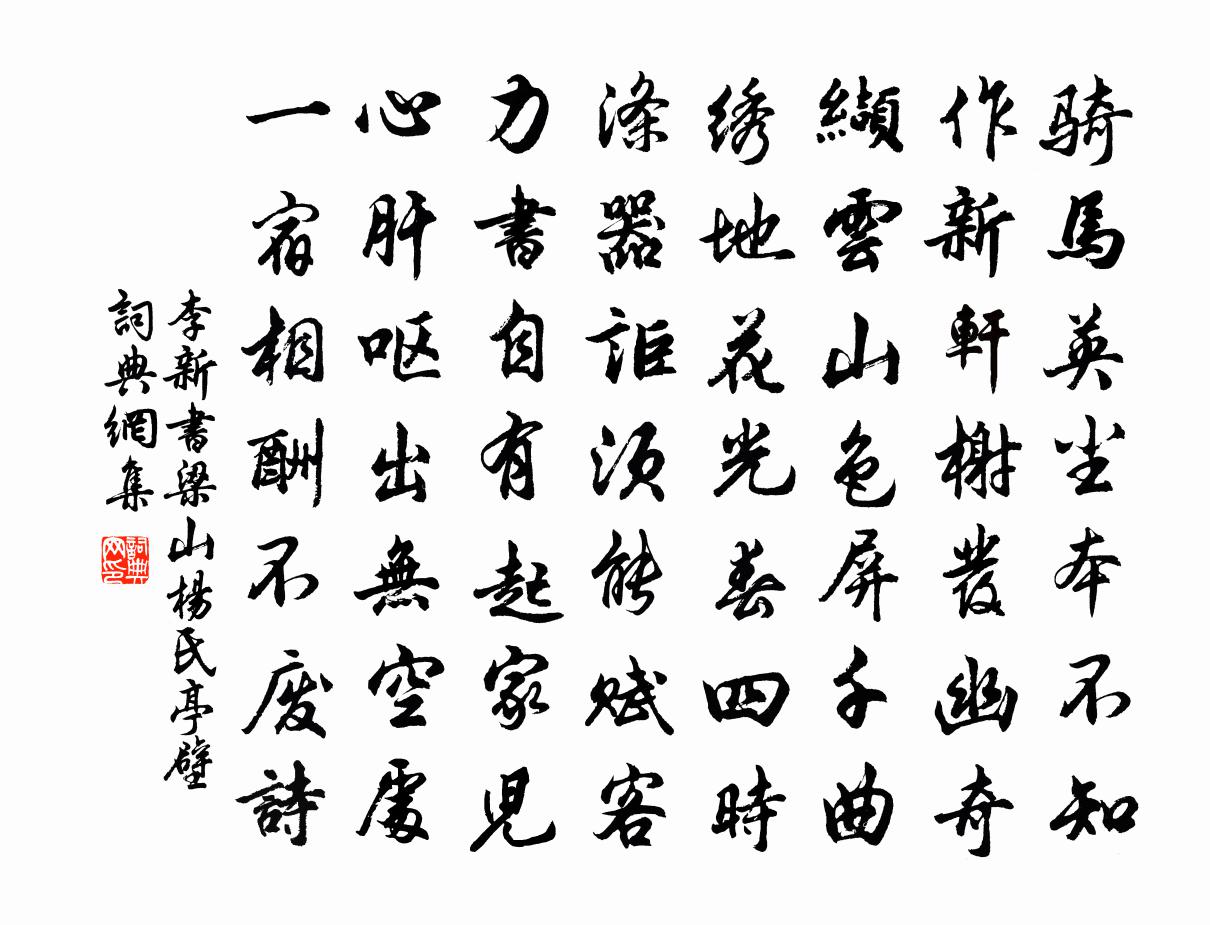 骑馬英尘本不知
作新軒榭發幽奇
纈雲山色屏千曲
绣地花光春四時
滌器詎须能赋客
力書自有起家児
心肝呕出無空處
一宿相酬不废詩
李新書梁山楊民亭壁
詞典網集
詞典網印